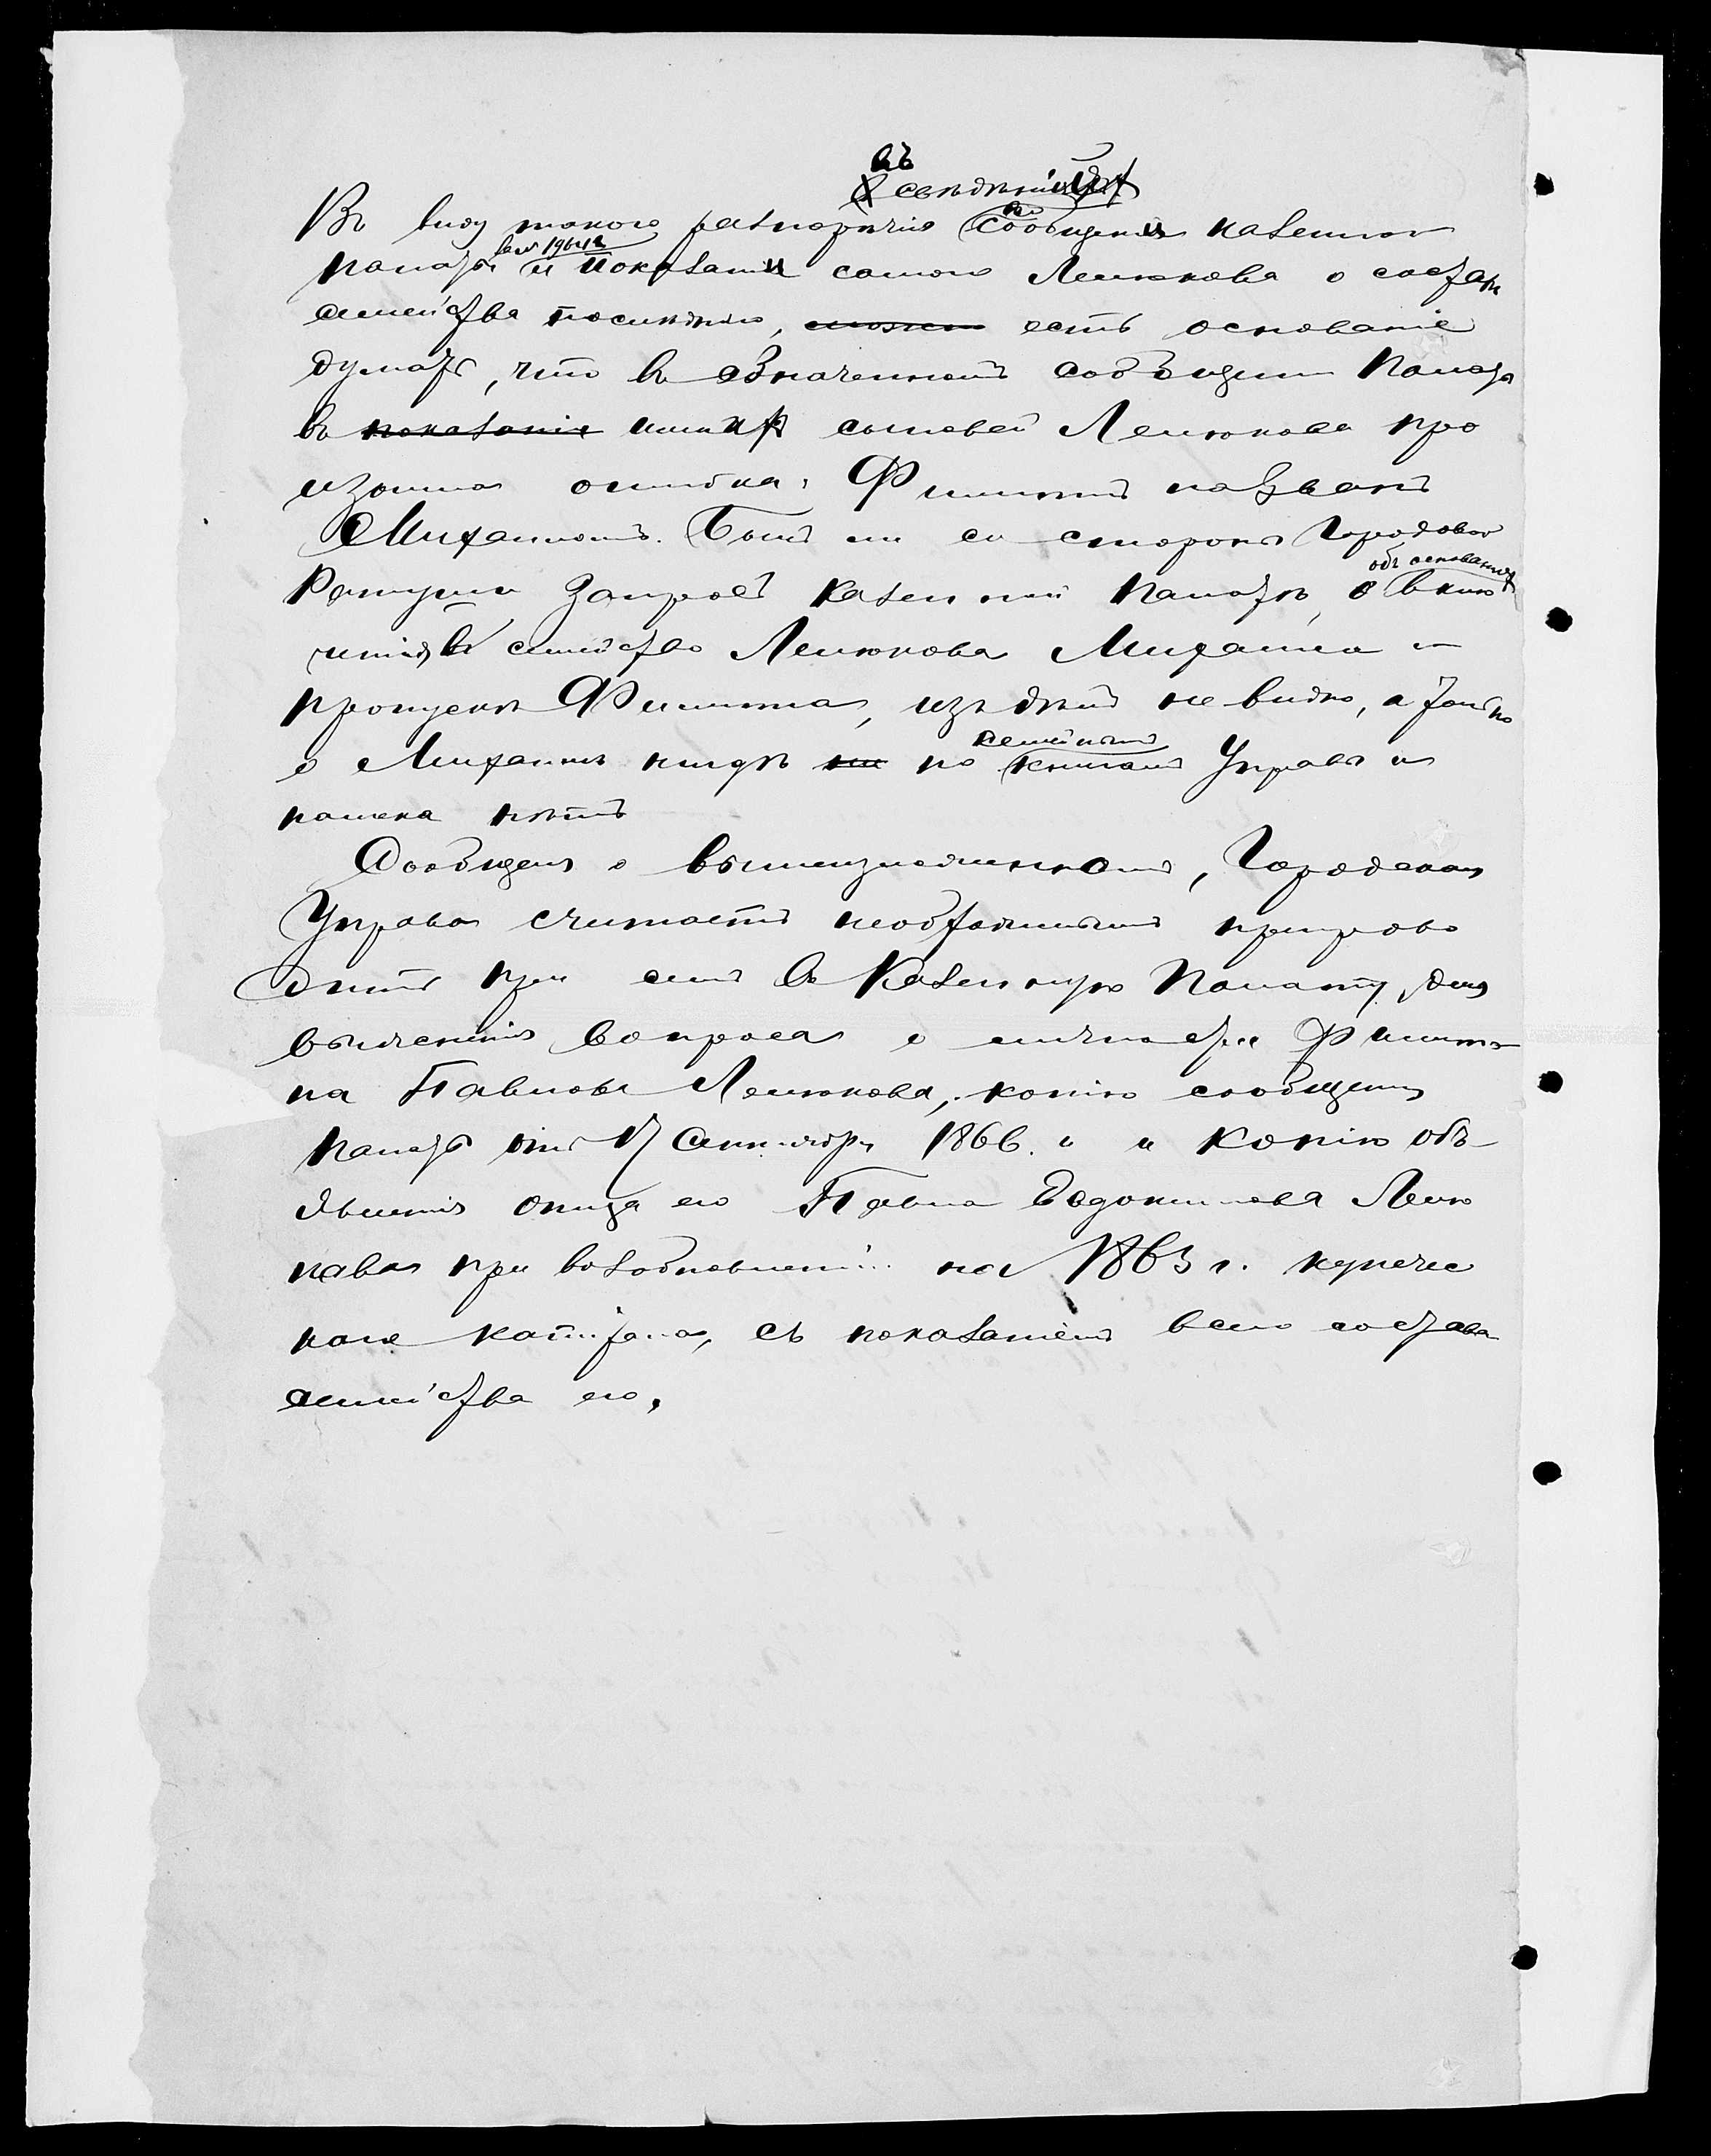 въ
Въ виду такого разнорѣчія сообщенія казенной
палаты и показанія самого Лелюкова о составѣ
семейства послѣдняго, есть основаніе
думать, что въ означенномъ сообщеніи палаты
въ показаніи именъ сыновей Лелюкова про
изошла ошибка: Филиппъ названъ
Михаиломъ. Былъ ли со стороны Городовой
объ основаніяхъ
Ратуши запросъ казенной палатѣ, о вклю
ченія въ семейство Лелюкова Михаила и
пропускѣ Филиппа, изъ дѣлъ не видно, а только
семейнымъ
о Михаилѣ нигдѣ по книгамъ Управы и
намека нѣтъ
Сообщая о вышеизложенномъ, Городская
Управа считаетъ необходимымъ препрово
дить при семъ въ Казенную Палату, для
выясненія вопроса о личности Филип
па Павлова Лелюкова, копію сообщенія
палаты отъ 17 Сентября 1866. и копію объ
явленія отца его Павла Евдокимова Лелю
кова при возобновленіи на 1863 г. купечес
каго капитала, съ показаніемъ всего состава
семейства его.